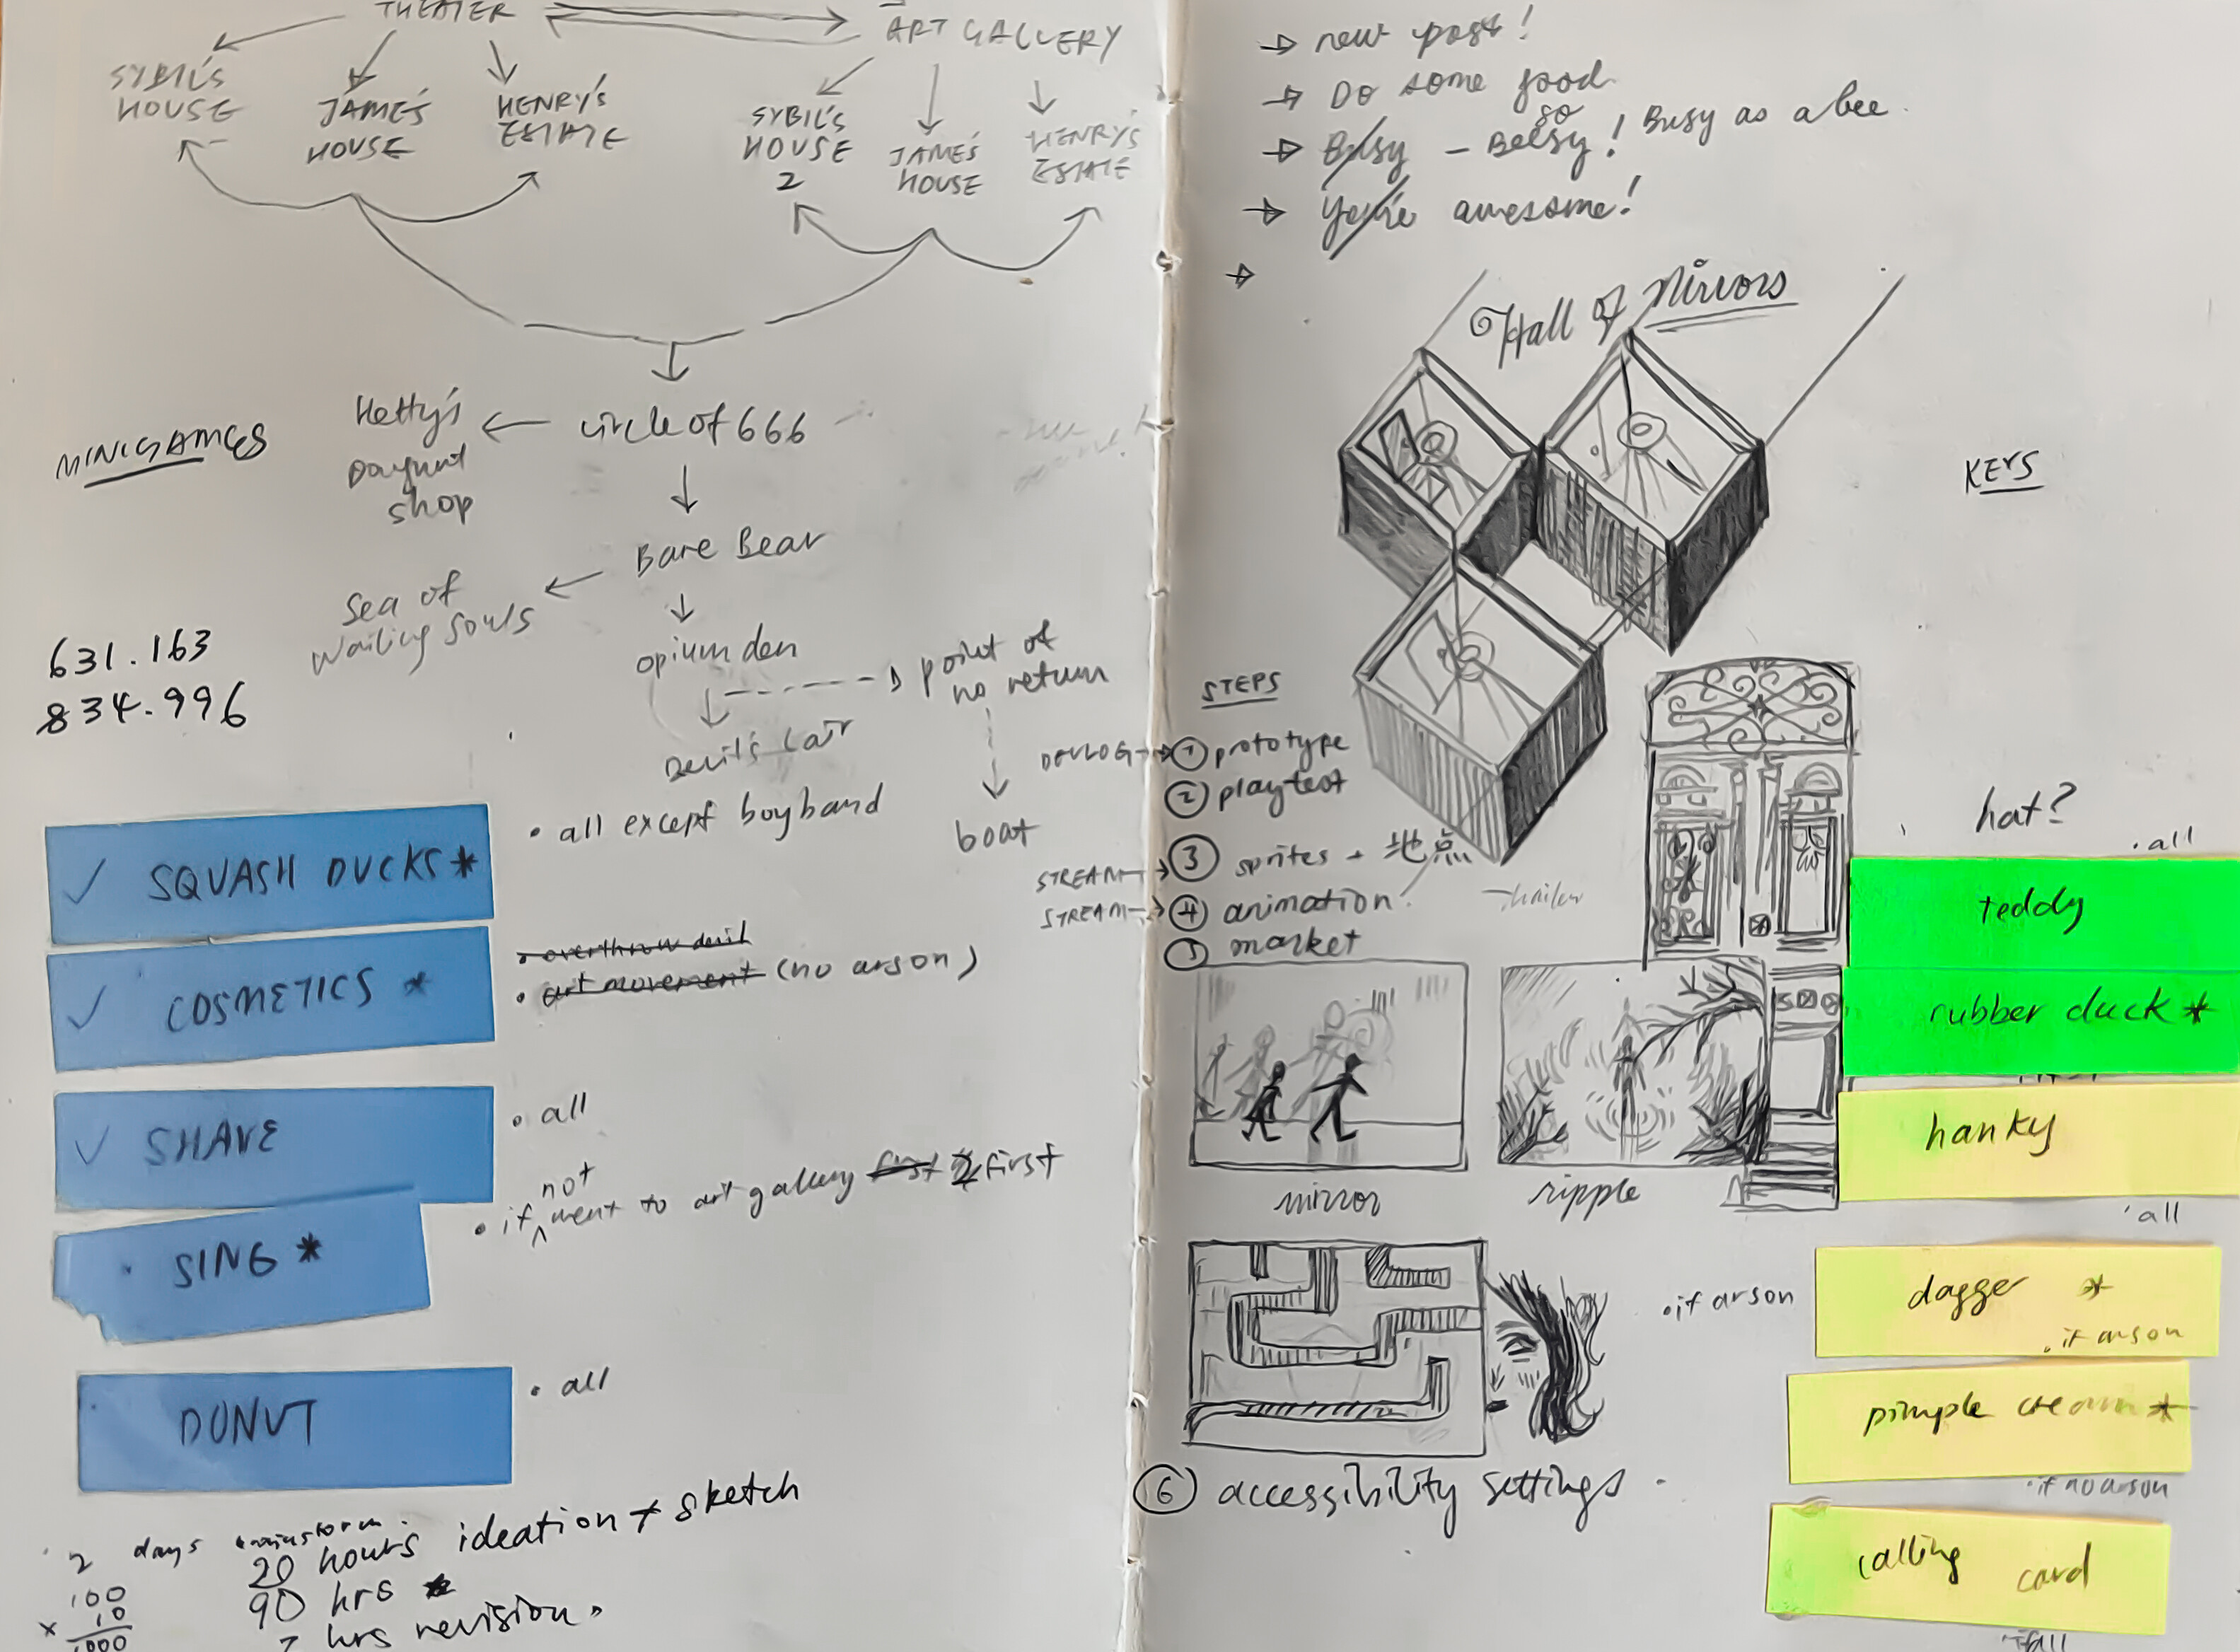 THEATER
ART GALLERY
SYBIL'S
HOUSE
JAME'S
HOUSE
HENRY'S
ESTATE
SYBIL'S
HOUSE
2
JAME'S
HOUSE
HENRY'S
ESTATE
MINIGAMES
Hetty's
shop
circle of 666
Bare Bear
Sea of
Wailing Souls
631.163
834.996
opium den
point of
no return
Devil's Lair
boat
✓ SQUASH DUCKS *
• all except boyband
✓ COSMETICS *
• overthrow devil
• art movement (no arson)
✓ SHAVE
• all
SING *
not
• if ^ went to art gallery first 2 first
DONUT
• all
2 days brainstorm.
20 hours ideation + sketch
90 hrs
hrs revision.
100
x 10
1000
→ new post!
→ Do some good
so
→ Busy - Beesy! Busy as a bee.
→ You're awesome!
→
Hall of Mirrors
KEYS
STEPS
DEVLOG → ① prototype
② playtest
STREAM → ③ sprites + 地点
STREAM → ④ animation.
trailer
⑤ market
mirror
ripple
⑥ accessibility settings
hat?
• all
teddy
rubber duck *
hanky
• all
• if arson
dagger *
• if arson
pimple cream *
• if no arson
calling card